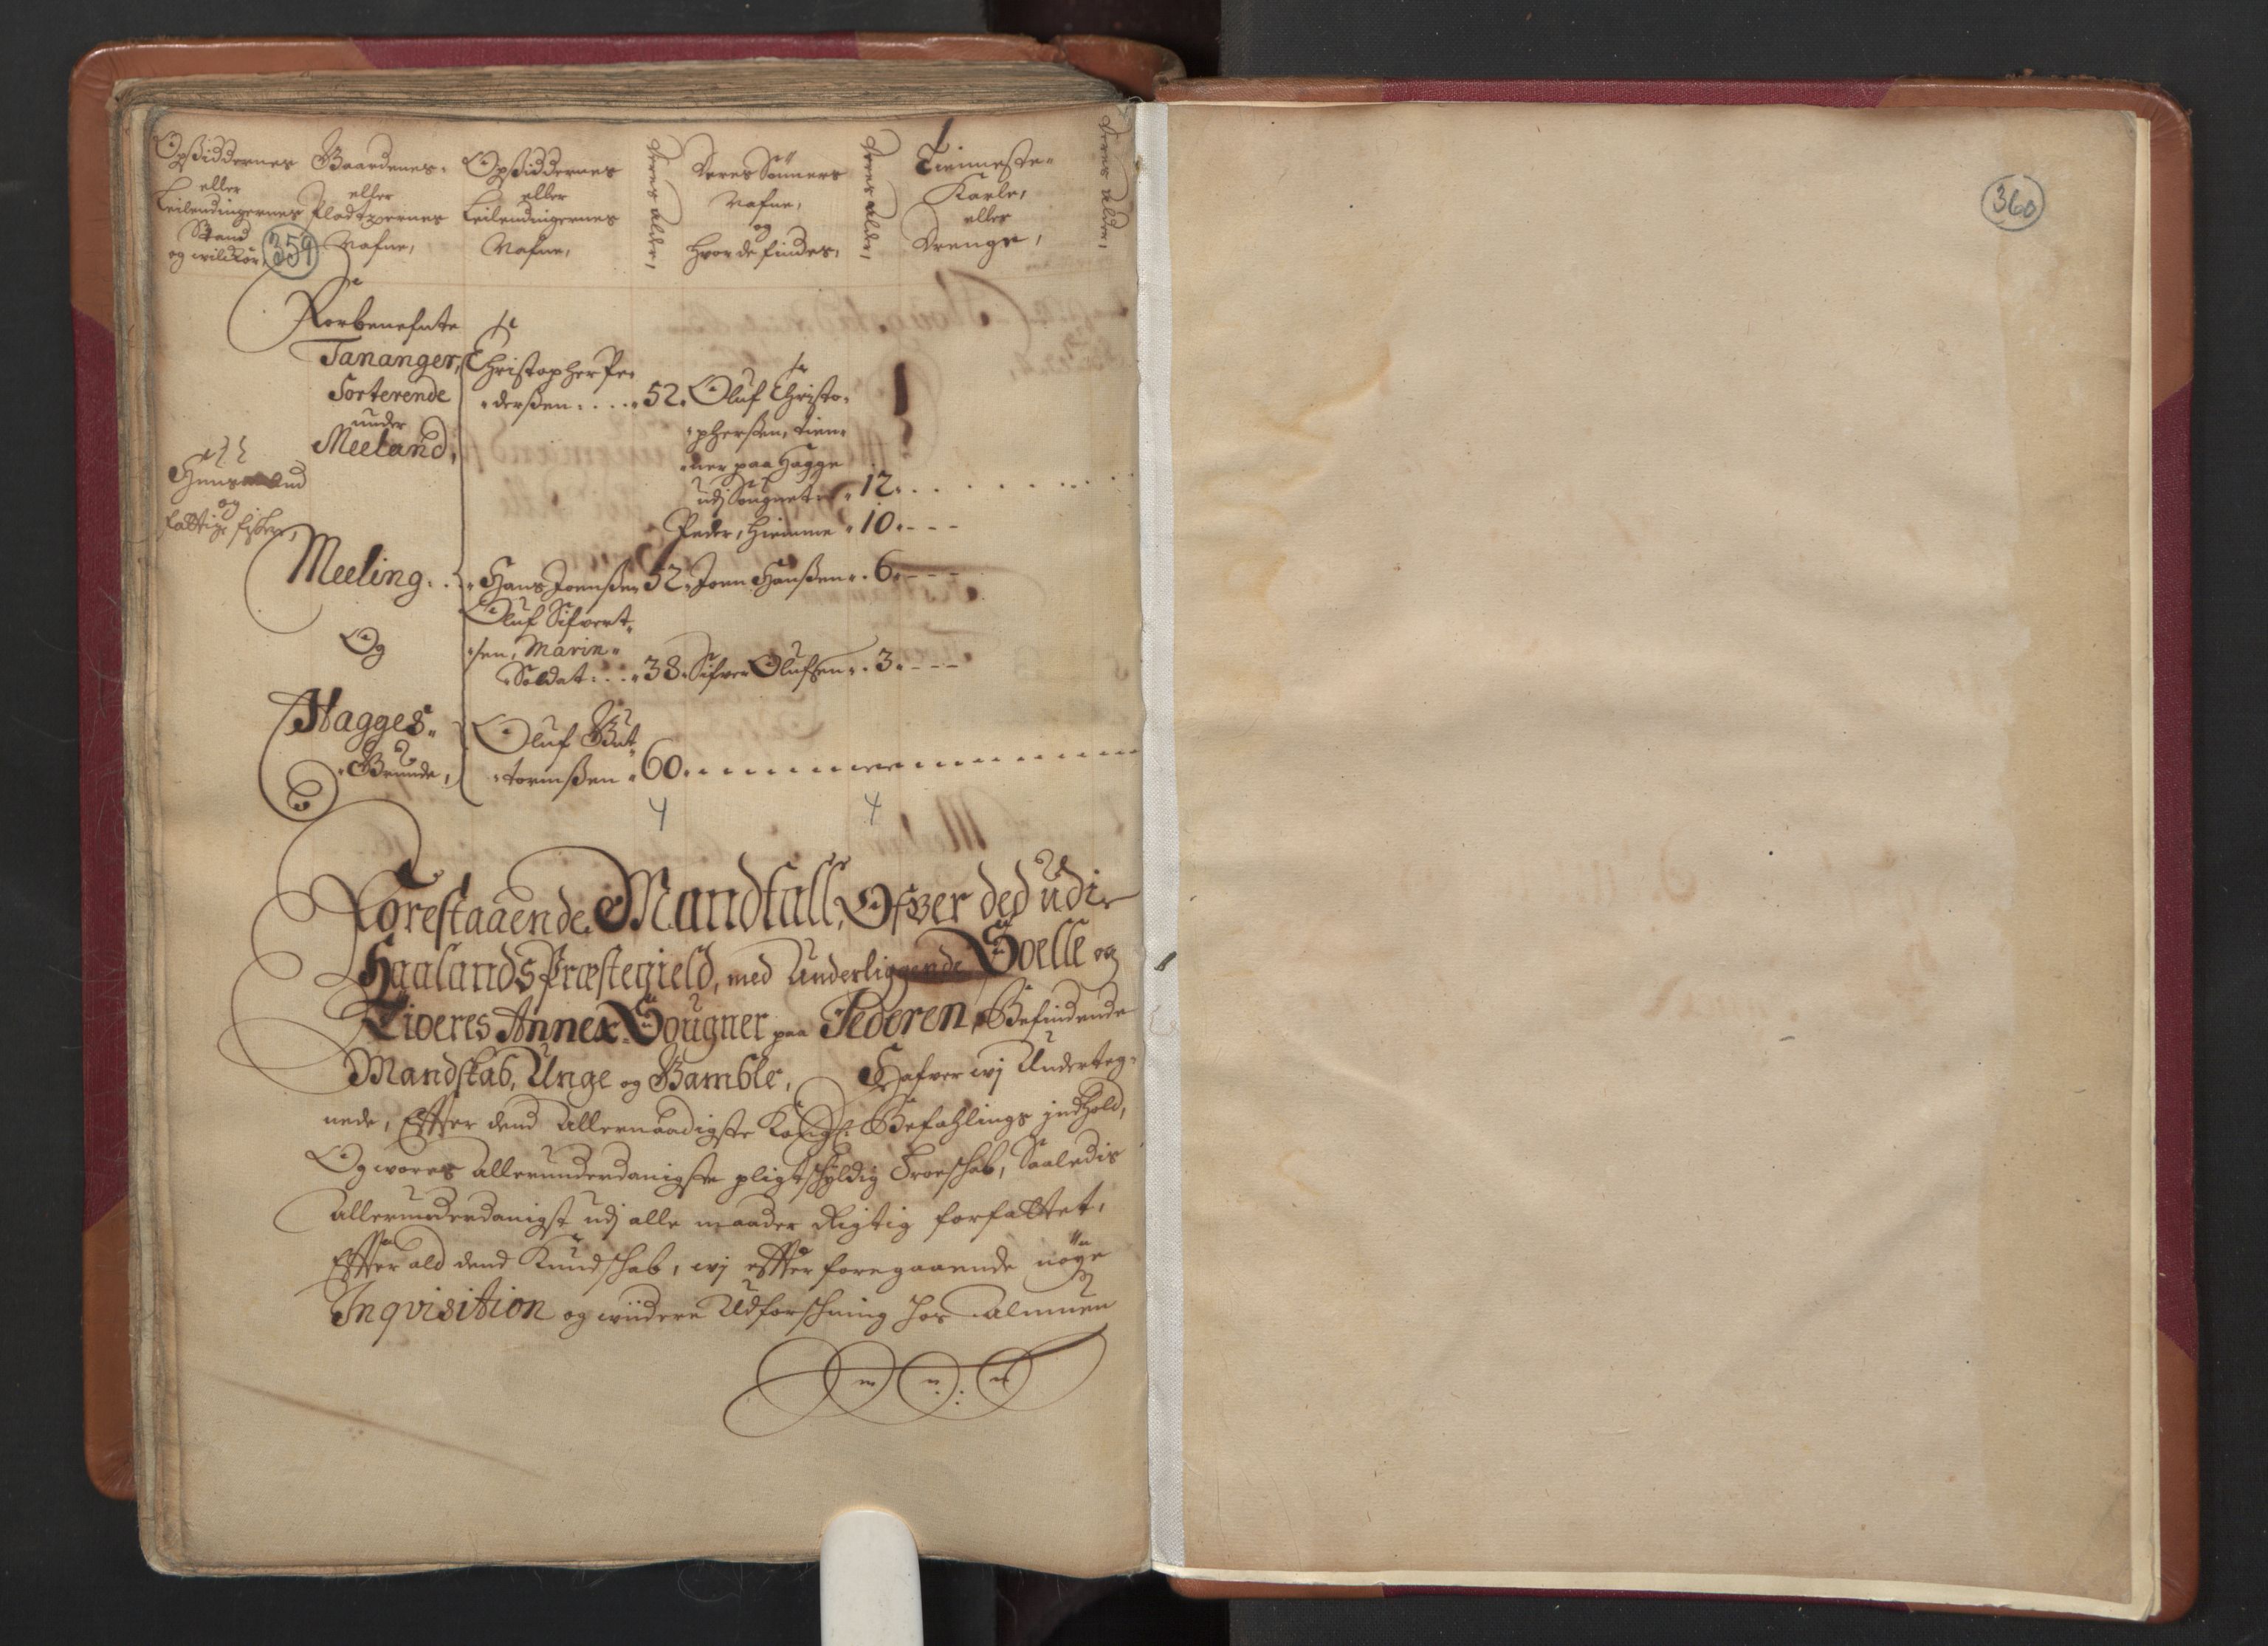 Opsiddernes
eller
Leilendingernes
Stand
og vilckor,
359
Gaardenes
eller
Pladtzernes
Nafne,
Opsiddernes
eller
Leilendingernes
Nafne,
Deres alder,
Deres Sønners
Nafne,
og
hvor de findes,
Deres alder,
Tienneste
Karle,
eller
Drenge,
Deres alder,
Forbenefnte
Tananger,
Sorterende
under
Meeland,
Huusmænd
og
fattige fisker,
Christopher Pe-
derßen . . . 52.
Oluf Christo-
pherßen, tien-
ner paa Hagge
udj Sougnet . 12.
Peder, hiemme . 10.
Meeling . . Hans Joenßen 52. Joen Hanßen . 6.
Og
Oluf Sifvert-
sen, Marin-
Soldat . . . 38. Sifver Olufsen . 3.
Hagges-
Brunde,
Oluf Gut-
tormßen . 60.
4 4
Forestaaende Mandtall, Ofver ded udi
Haalands Præstegield, med Underliggende Soelle og
Tioeres Annex Sougner paa Jederen, Befindende
Mandskab, Unge og Gamble, Hafver wj Underteg-
nede, Effter dend Allernaadigste Kongl. Befahlings jndhold,
Og vores allerunderdanigste pligtschyldig Troeschab, Saaledis
Allerunderdanigst udj alle maader Rigtig forfattet,
Effter ald dend Kundschab, wj effter foregaaende nøye
Inqvisition og viidere Udforschning hos almuen
360